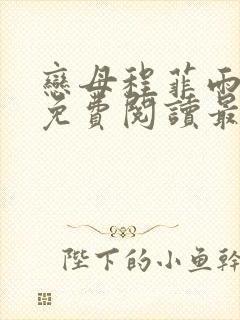 戀母程菲雨
免費閱讀最
陛下的小魚幹